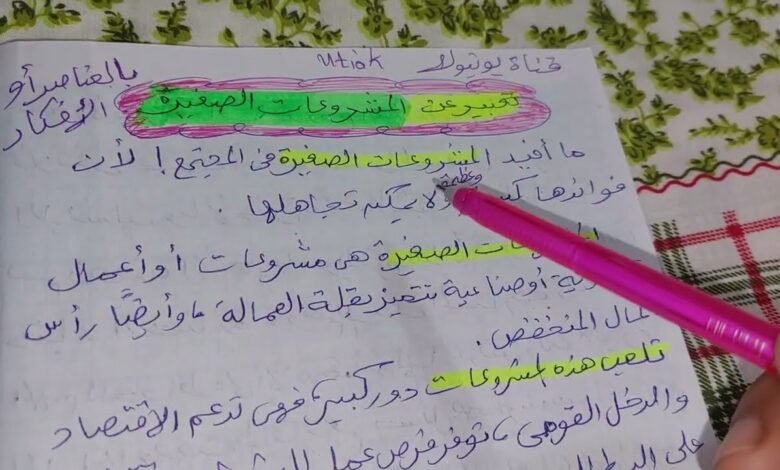 قناة يوتيوب Utiok
بالعناصر أو الأفكار
تعبير عن المشروعات الصغيرة
ما أفيد المشروعات الصغيرة فى المجتمع! لأن
فوائدها وعظيمة ولا يمكن تجاهلها.
الصغيرة هى مشروعات أو أعمال
أو صناعية تتميز بقلة العمالة، وأيضًا رأس
المال المنخفض.
تلعب هذه المشروعات دور كبير، فهى تدعم الاقتصاد
والدخل القومى، توفر فرص عمل
على